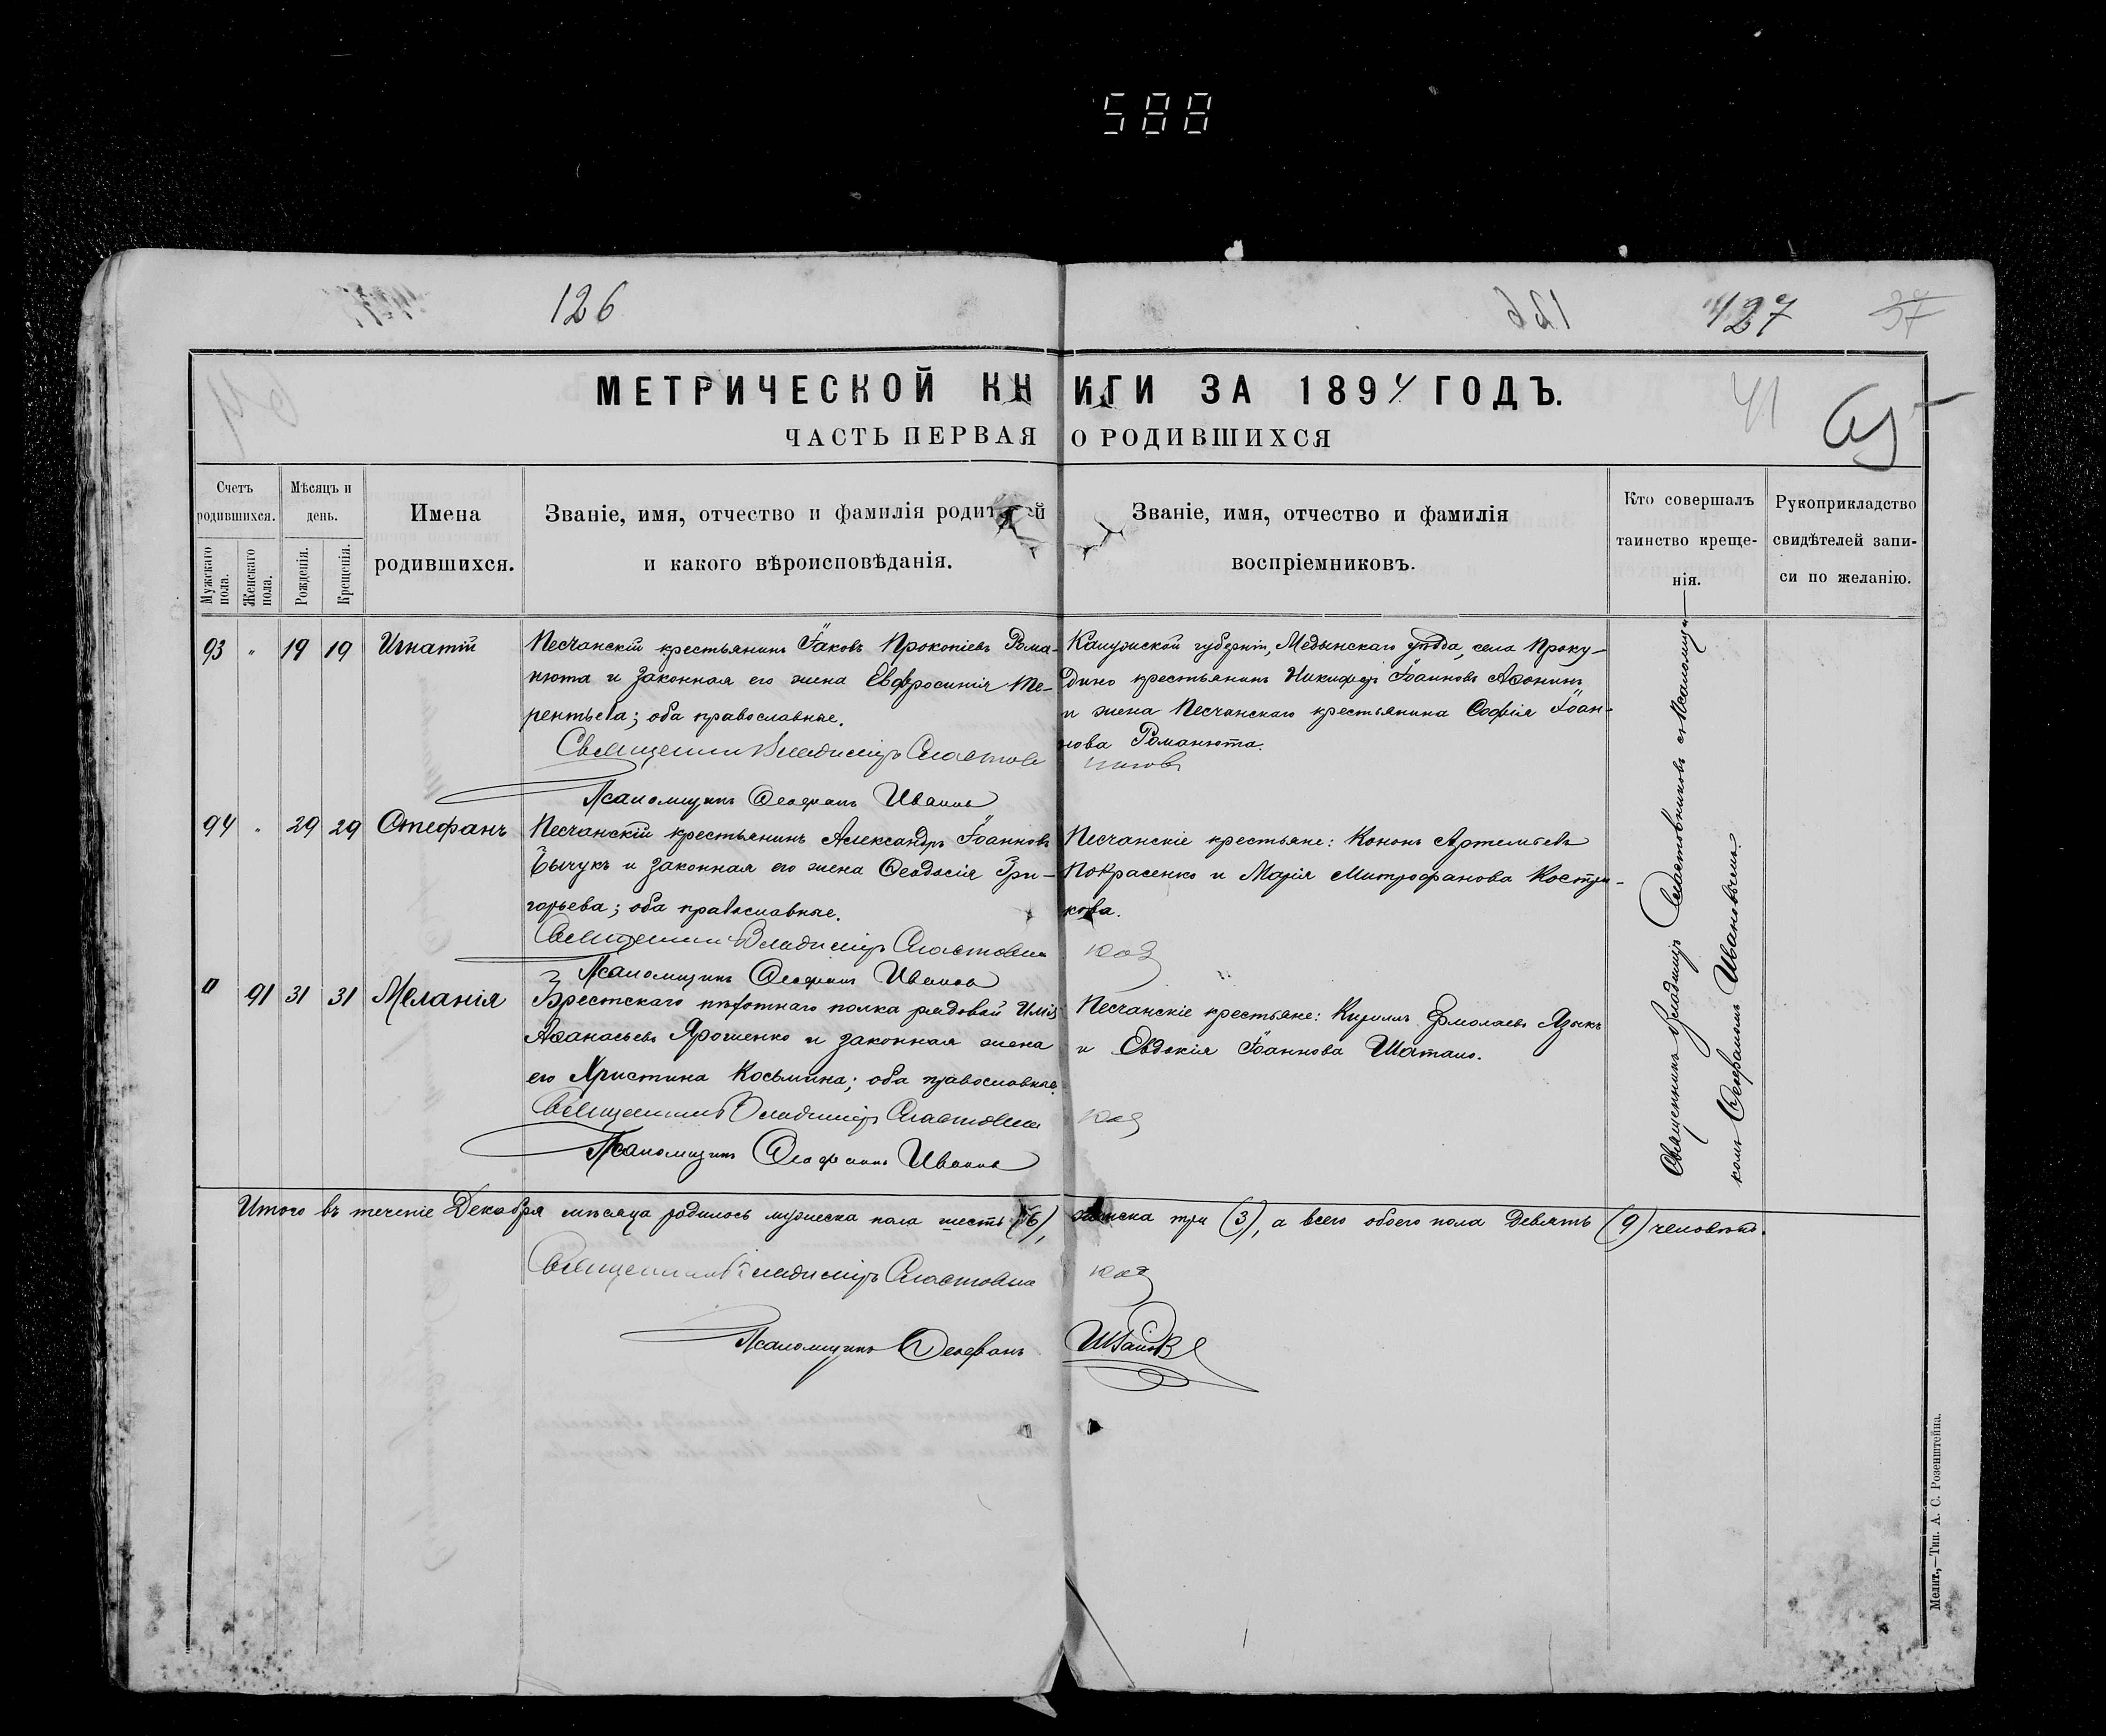 588
126
127
37
41
МЕТРИЧЕСКОЙ КНИГИ ЗА 1894 ГОДЪ.
ЧАСТЬ ПЕРВАЯ О РОДИВШИХСЯ
Счетъ родившихся.
Мужскаго пола.
Женскаго пола.
Мѣсяцъ и день.
Рожденія.
Крещенія.
Имена родившихся.
Званіе, имя, отчество и фамилія родителей
и какого вѣроисповѣданія.
Званіе, имя, отчество и фамилія
воспріемниковъ.
Кто совершалъ
таинство креще-
нія.
Рукоприкладство
свидѣтелей запи-
си по желанію.
93 " 19 19 Игнатій
Песчанскій крестьянинъ Іаковъ Прокопіевъ Рома-
нюта и законная его жена Евфросинія Те-
рентьева; оба православные.
Священникъ Владиміръ
Псаломщикъ Ѳеофанъ Ивановъ
Калужской губерніи, Медынскаго уѣзда, села Проку-
дино крестьянинъ Никифоръ Іоанновъ Аѳонинъ
и жена Песчанскаго крестьянина Софія Іоан-
нова Романюта.
94 " 29 29 Стефанъ
Песчанскій крестьянинъ Александръ Іоанновъ
Бычукъ и законная его жена Ѳеодосія Гри-
горьева; оба православные.
Священникъ Владиміръ
Псаломщикъ Ѳеофанъ Ивановъ
Песчанскіе крестьяне: Кононъ Артемьевъ
Покрасенко и Марія Митрофанова Костри-
кова.
" 91 31 31 Меланія
Брестскаго пѣхотнаго полка рядовой Илія
Аѳанасьевъ Ярошенко и законная жена
его Христина Косьмина; оба православные.
Священникъ Владиміръ
Псаломщикъ Ѳеофанъ Ивановъ
Песчанскіе крестьяне: Кириллъ Ермолаевъ Языкъ
и Евдокія Іоаннова Шатало.
Священникъ Владиміръ съ Псаломщи-
комъ Ѳеофаномъ Ивановымъ.
Итого въ теченіе Декабря мѣсяца родилось мужеска пола шесть (6), женска три (3), а всего обоего пола девять (9) человѣкъ.
Священникъ Владиміръ
Псаломщикъ Ѳеофанъ Ивановъ
Мелит,—Тип. А. С. Розенштейна.